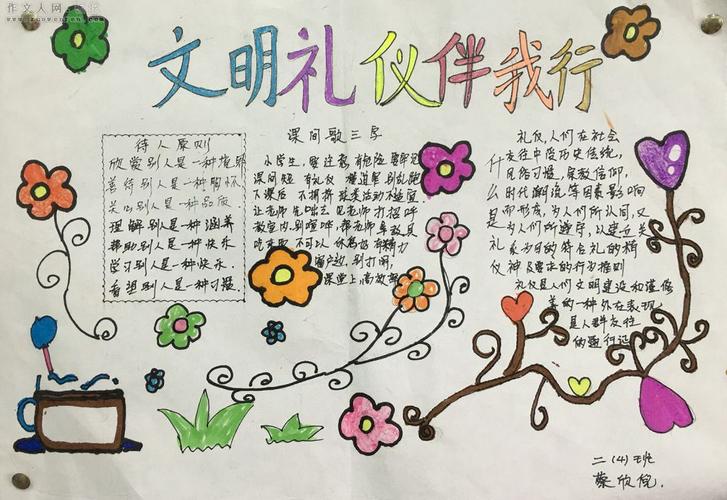 作文人网
www.zuowenren.com
文明礼仪伴我行
待人原则
欣赏别人是一种境界
善待别人是一种胸怀
关心别人是一种品质
理解别人是一种涵养
帮助别人是一种快乐
学习别人是一种快乐
看望别人是一种习惯
课间歌三字
小学生,要注意
课间短 有礼仪 楼道里 别乱跑
下课后 不拥挤
让老师 先出去 见老师 打招呼
教室内 别喧哗 帮老师
不可以
别打闹,
课堂上
礼仪,人们在社会
什 交往中受历史传统,
风俗习惯,宗教信仰,
么 时代潮流等因素影响
而形成,为人们所认同,又
是 为人们所遵守,以建立
礼 系为目的符合礼的精
仪 神及要求的行为准则
礼仪是人们文明建设和道德
美的一种外在表现,
是人群交往
的通行证
二(4)班
蔡欣倪